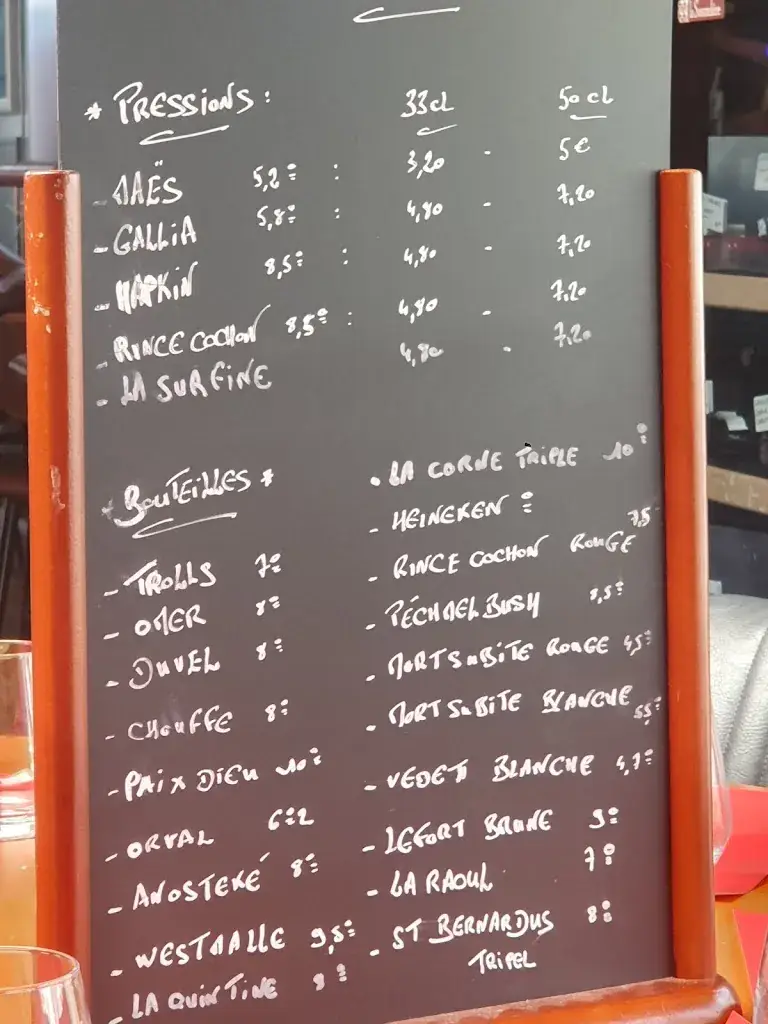 * PRESSIONS : 33cl 50cl
- MAËS 5,2° : 3,20 - 5€
- GALLIA 5,8° : 4,80 - 7,20
- HAPKIN 8,5° : 4,80 - 7,20
- RINCE COCHON 8,5° : 4,80 - 7,20
- LA SURFINE 4,80 - 7,20
* BOUTEILLES *
- TROLLS 7°
- OMER 8°
- DUVEL 8°
- CHOUFFE 8°
- PAIX DIEU 10°
- ORVAL 6°2
- ANOSTEKÉ 8°
- WESTMALLE 9,5°
- LA QUINTINE 8°
- LA CORNE TRIPLE 10°
- HEINEKEN °
- RINCE COCHON ROUGE 7,5
- PÉCHMEL BUSH 8,5°
- MORT SUBITE ROUGE 4,5°
- MORT SUBITE BLANCHE 5,5°
- VEDETT BLANCHE 4,7°
- LEFORT BRUNE 9°
- LA RAOUL 7°
- ST BERNARDUS 8°
TRIPEL